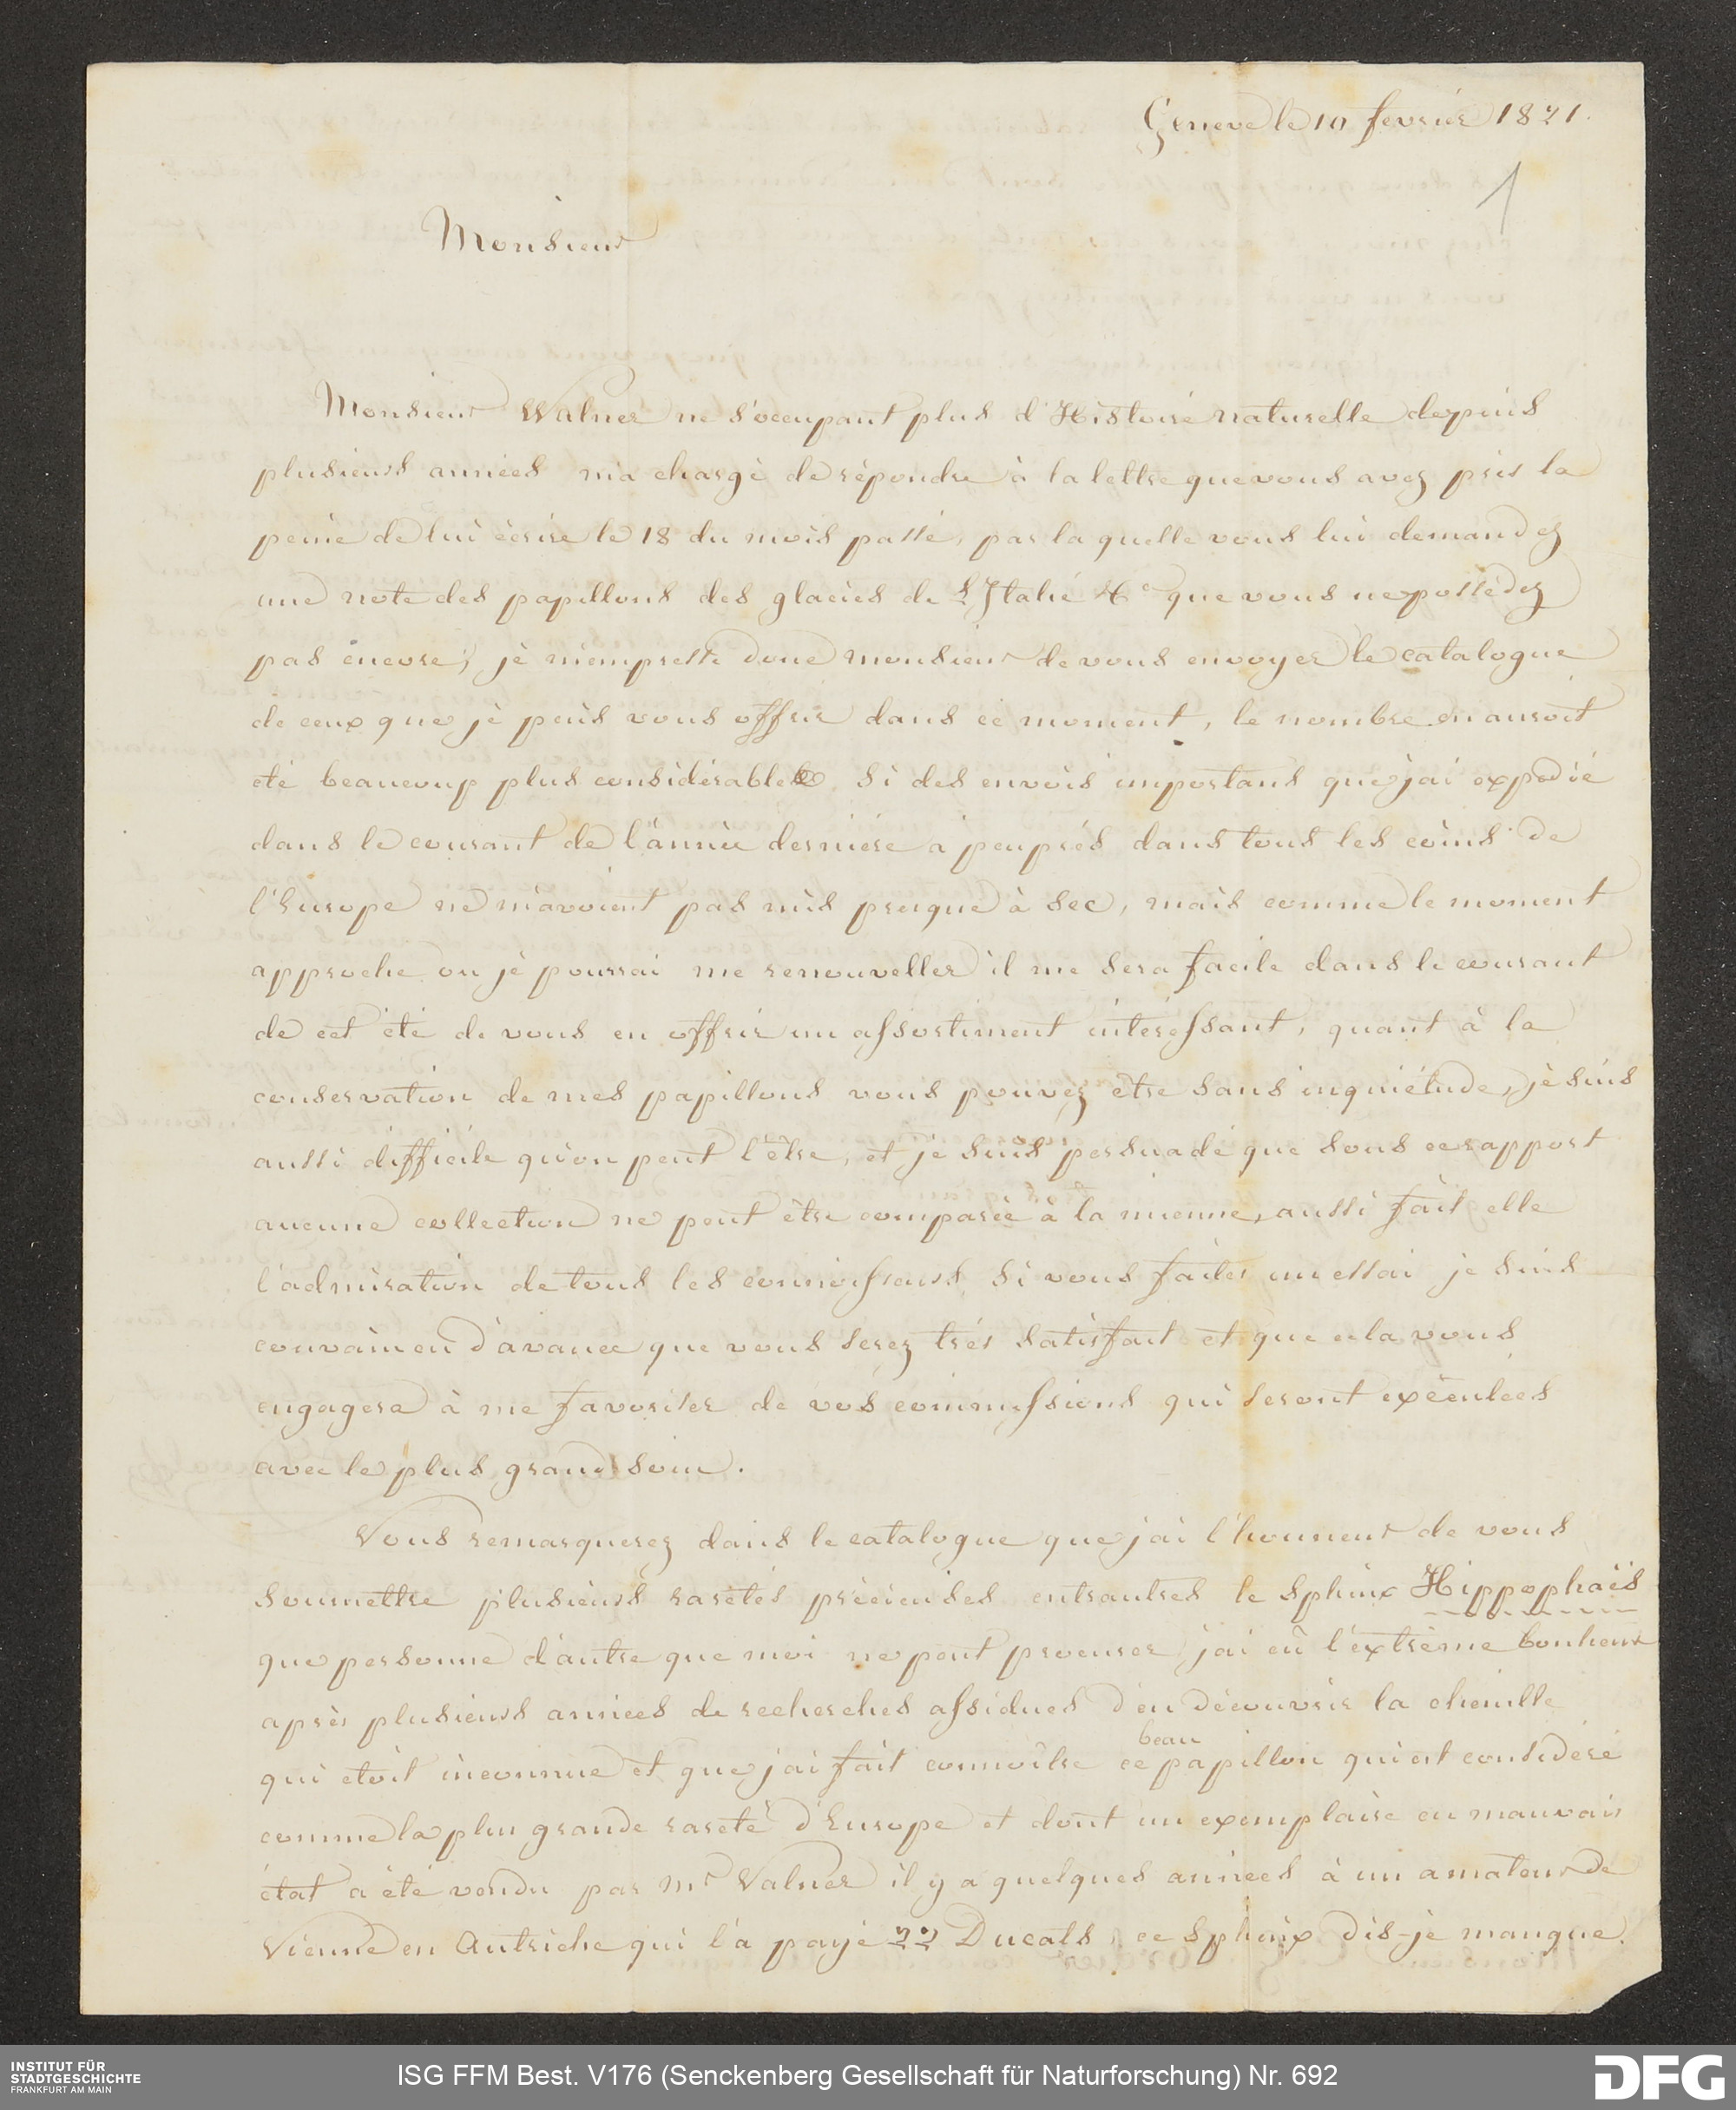 Geneve le 10 fevrier 1821.
1
Monsieur
Monsieur Walner ne s'occupant plus d'Histoire naturelle depuis
plusieurs années m'a chargé de répondre à la lettre que vous avez pris la
peine de lui écrire le 18 du mois passé, par la quelle vous lui demandez
une note des papillons des glaciers de L'Italie &c que vous ne possédez
pas encore; je m'empresse donc monsieur de vous envoyer le catalogue
de ceux que je peus vous offrir dans ce moment, le nombre en auroit
eté beaucoup plus considérable si des envois importans que j'ai expedié
dans le courant de l'année derniére à peuprés dans tous les coins de
l'Europe ne m'avoient pas mis presque à sec, mais comme le moment
approche ou je pourrai me renouveller il me sera facile dans le courant
de cet été de vous en offrir un assortiment intéressant, quant à la
conservation de mes papillons vous pouvez être sans inquiétude, je suis
aussi difficile qu'on peut l'être, et je suis persuadé que sous ce rapport
aucune collection ne peut être comparée à la mienne, aussi fait elle
l'admiration de tous les connoisseurs, si vous faites un essai je suis
convaincu d'avance que vous serez trés satisfait et que cela vous
engagera à me favoriser de vos commissions qui seront exécutées
avec le plus grand soin.
Vous remarquerez dans le catalogue que j'ai l'honneur de vous
soumettre plusieurs raretés précieuses entrautres le sphinx Hippophaës
que personne d'autre que moi ne peut procurer, j'ai eû l'extrème bonheur
après plusieurs années de recherches assidues d'en découvrir la chenille
qui etoit inconnue et que j'ai fait connoître ce beau papillon qui est considéré
comme la plus grande rareté d'Europe et dont un exemplaire en mauvais
état a été vendu par Mr Valner il y a quelques années à un amateur de
Vienne en Autriche qui l'a payé 22 Ducats, ce sphinx dis-je manque
INSTITUT FÜR
STADTGESCHICHTE
FRANKFURT AM MAIN
ISG FFM Best. V176 (Senckenberg Gesellschaft für Naturforschung) Nr. 692
DFG